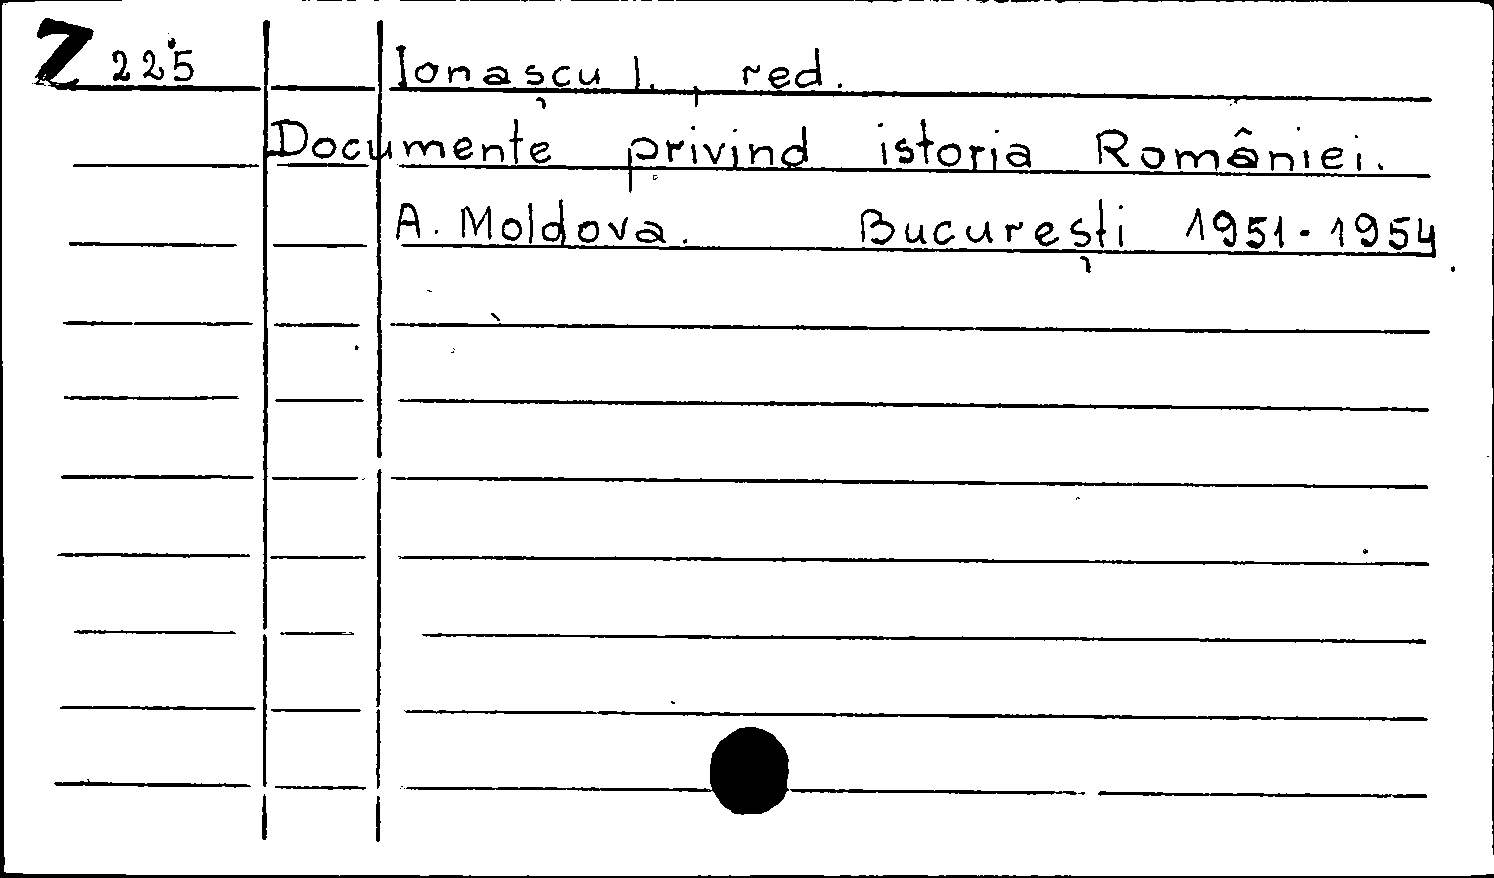 Z 225 Ionașcu I., red.
Documente privind istoria României.
A. Moldova. București 1951-1954.